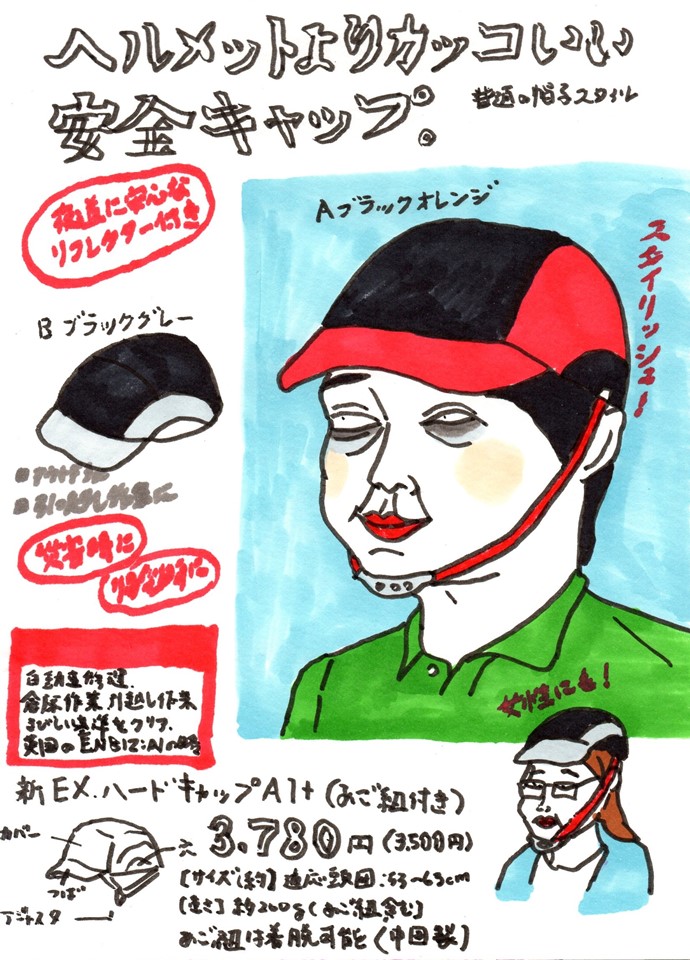 ヘルメットよりカッコいい
安全キャップ。
普通の帽子スタイル
夜道に安心な
リフレクター付き
Aブラックオレンジ
スタイリッシュ!
Bブラックグレー
■アウトドアに
■引っ越し作業に
災害時に
自動車修理、
倉庫作業 引越し作業
きびしい基準をクリア、
英国のEN812:A1の
女性にも!
新EX.ハードキャップA1+(あご紐付き)
カバー
つば
アジャスター
3.780円(3,500円)
[サイズ(約)]適応頭囲:53〜63cm
[重さ]約200g(あご紐含む)
あご紐は着脱可能(中国製)